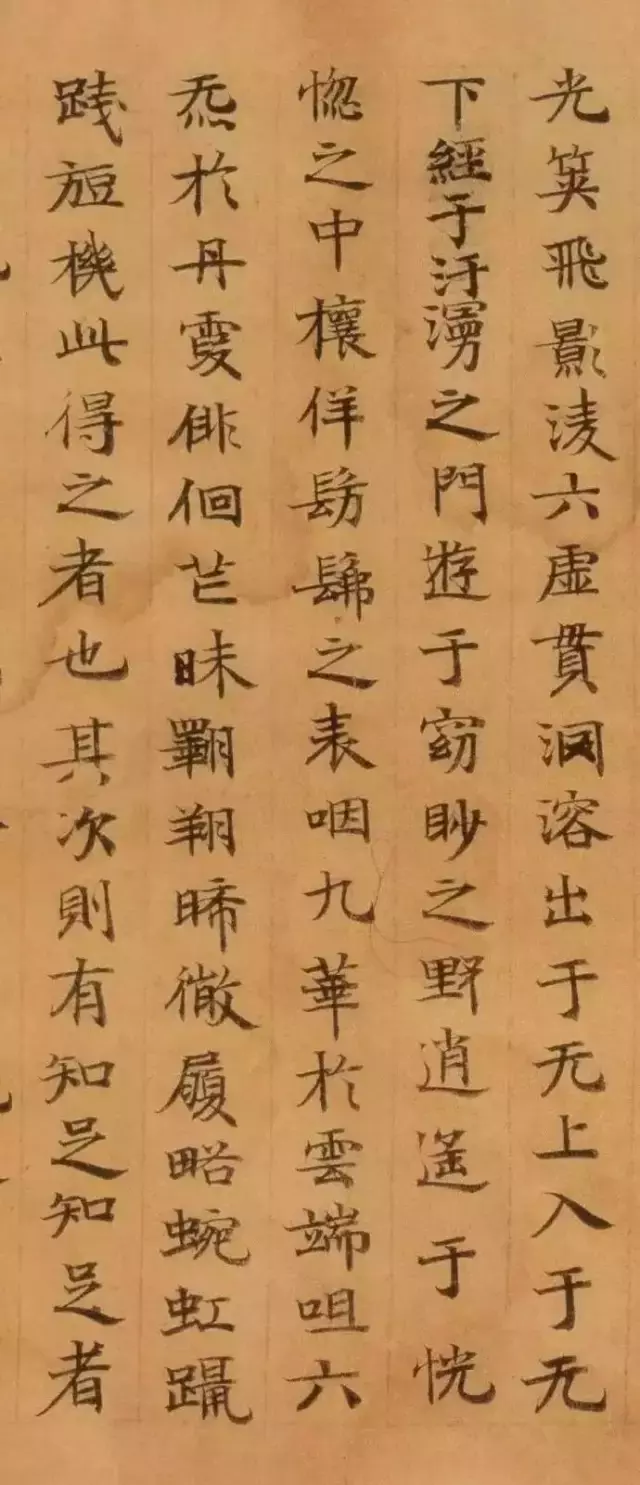 光筴飛影淩六虛貫洞溶出于无上入于无
下經于汙漫之門遊于窈眇之野逍遙于恍
惚之中欀佯髣髴之表咽九華於雲端咀六
炁於丹霞俳佪芒昧翱翔晞微履略蜿虹躡
踐旋機此得之者也其次則有知足知足者